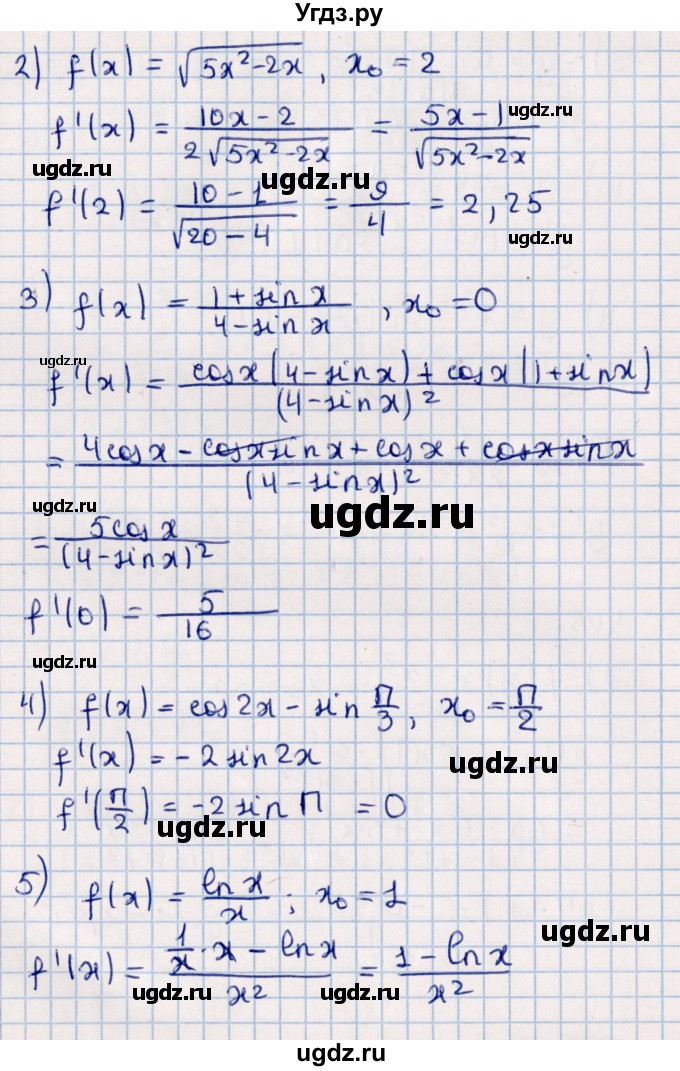 Угдз.ру
2) f(x) = √(5x²-2x), x₀ = 2
ugdz.ru
f'(x) = (10x-2)/(2√(5x²-2x)) = (5x-1)/√(5x²-2x)
ugdz.ru
ugdz.ru
f'(2) = (10-1)/√(20-4) = 9/4 = 2,25
ugdz.ru
3) f(x) = (1+sin x)/(4-sin x), x₀ = 0
ugdz.ru
ugdz.ru
f'(x) = (cos x(4-sin x)+cos x(1+sin x))/(4-sin x)²
= (4cos x - cos x sin x + cos x + cos x sin x)/(4-sin x)²
ugdz.ru
ugdz.ru
= 5cos x/(4-sin x)²
f'(0) = 5/16
ugdz.ru
4) f(x) = cos 2x - sin П/3, x₀ = П/2
f'(x) = -2 sin 2x
ugdz.ru
f'(П/2) = -2 sin П = 0
ugdz.ru
5) f(x) = ln x/x; x₀ = 1
ugdz.ru
f'(x) = (1/x · x - ln x)/x² = (1 - ln x)/x²
ugdz.ru
ugdz.ru
ugdz.ru